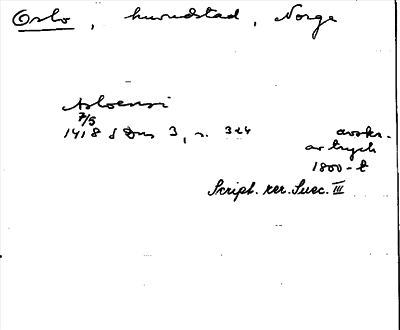 Oslo, huvudstad, Norge
Asloensi
7/5
1418 SDns 3, s. 324 avskr.
av tryck
1800-t
Script. rer. Suec. III